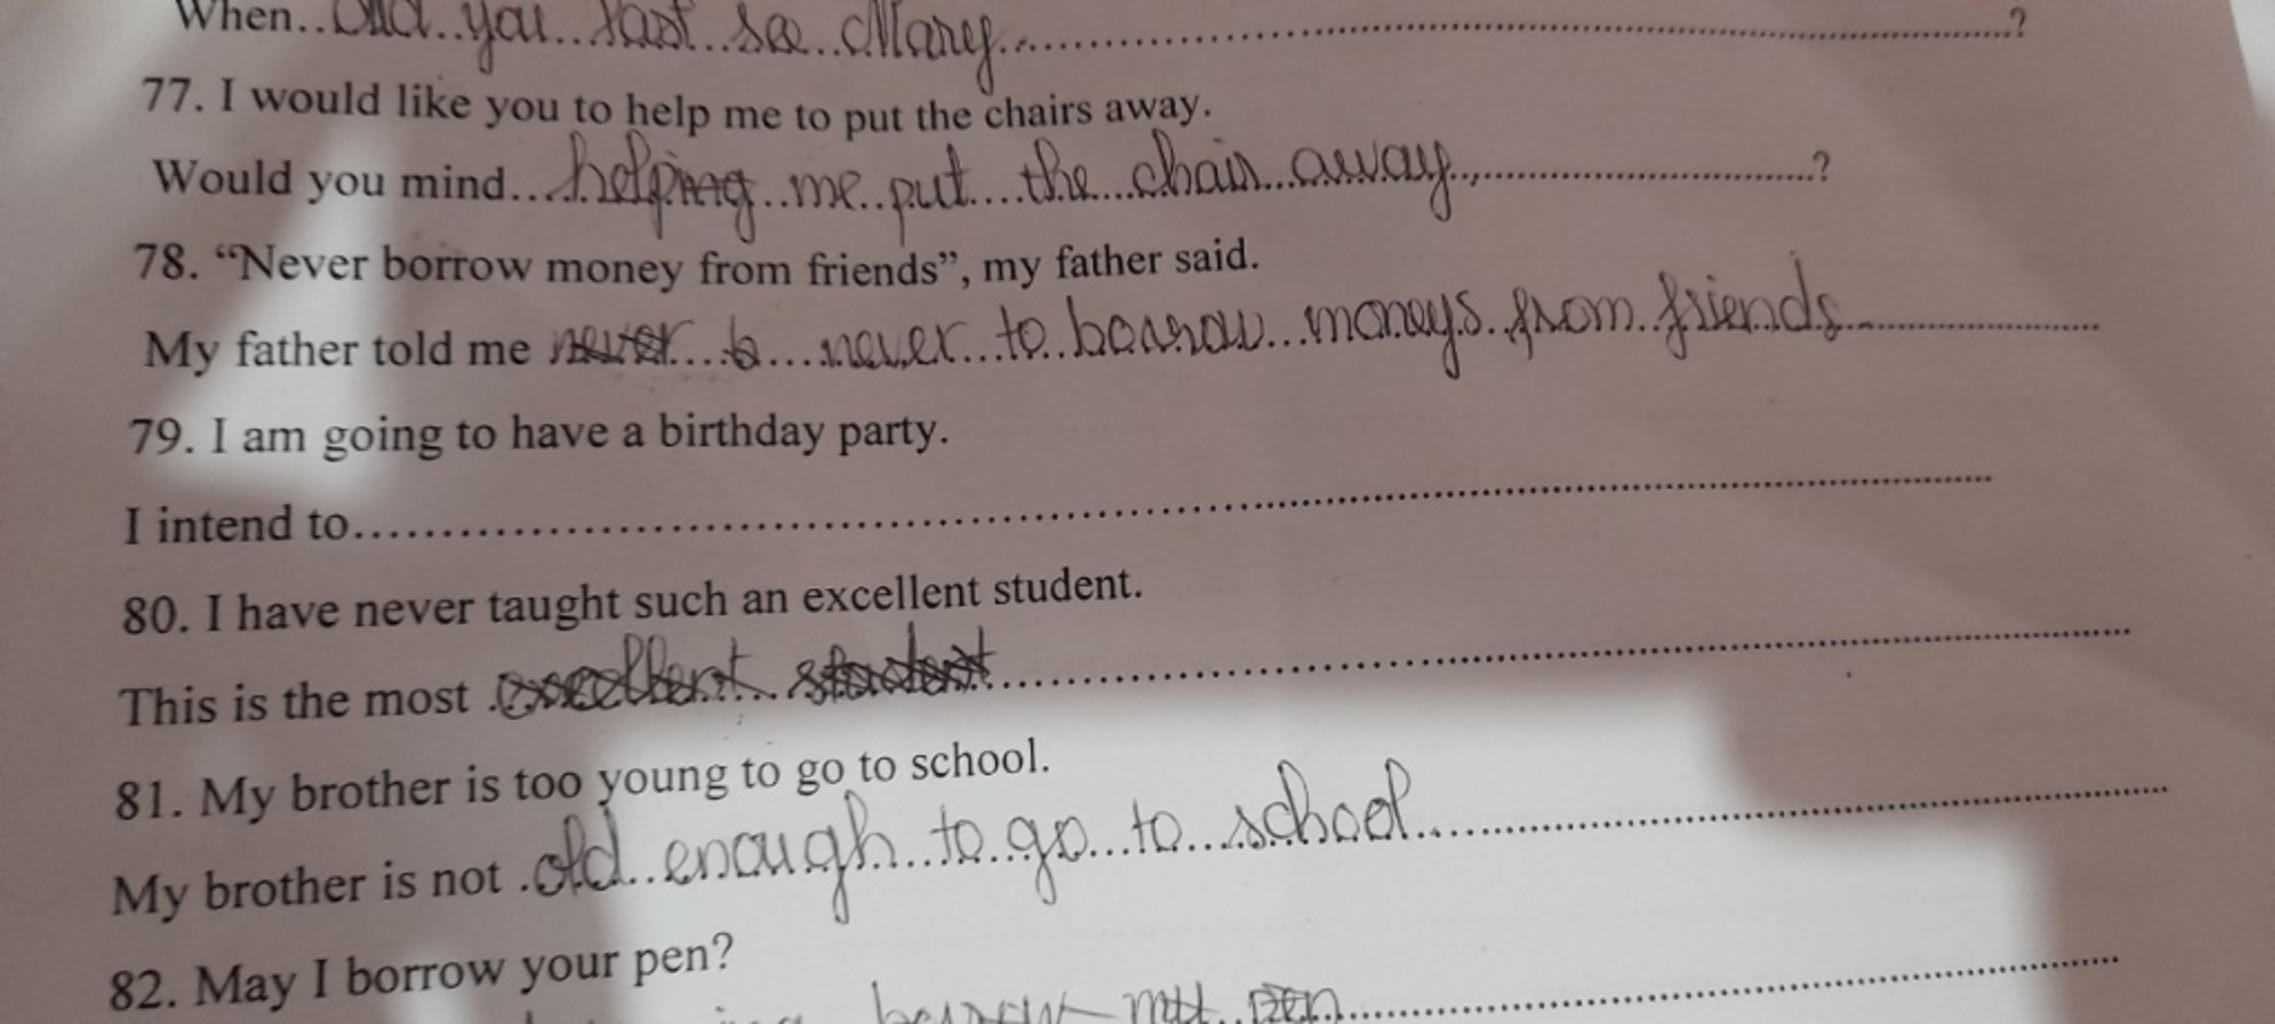 When.. did you last see Mary ...?
77. I would like you to help me to put the chairs away.
Would you mind... helping me put the chair away ...?
78. “Never borrow money from friends”, my father said.
My father told me never to never to borrow moneys from friends
79. I am going to have a birthday party.
I intend to...
80. I have never taught such an excellent student.
This is the most excellent student
81. My brother is too young to go to school.
My brother is not old enough to go to school
82. May I borrow your pen?
borrow my pen